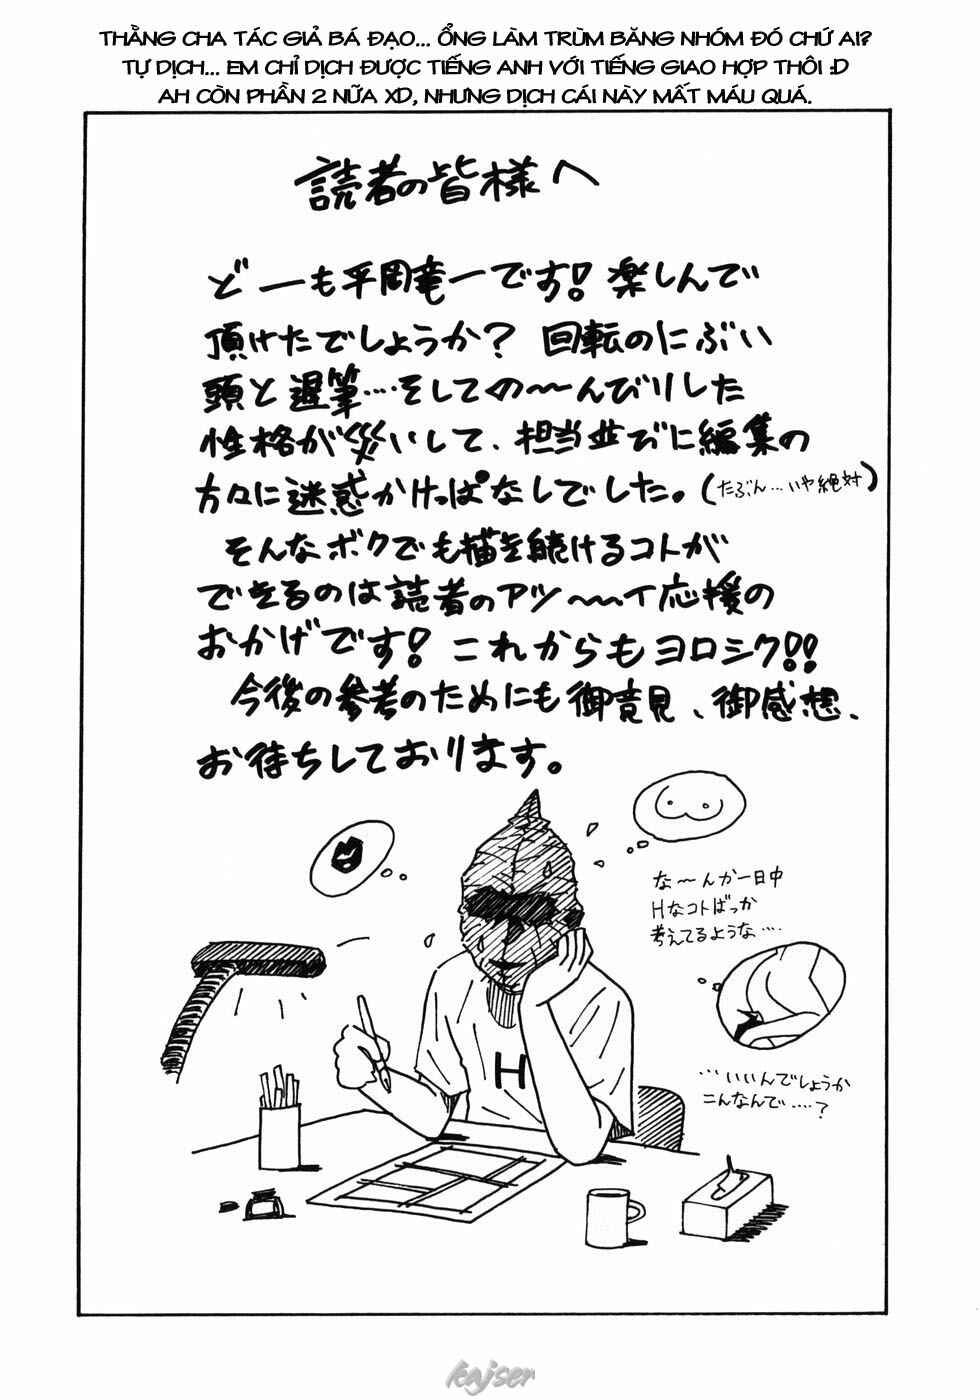 THẰNG CHA TÁC GIẢ BÁ ĐẠO... ỔNG LÀM TRÙM BĂNG NHÓM ĐÓ CHỨ AI?
TỰ DỊCH... EM CHỈ DỊCH ĐƯỢC TIẾNG ANH VỚI TIẾNG GIAO HỢP THÔI :D
AH CÒN PHẦN 2 NỮA XD, NHƯNG DỊCH CÁI NÀY MẤT MÁU QUÁ.
読者の皆様へ
どーも平岡竜一です！楽しんで
頂けたでしょうか？ 回転のにぶい
頭と遅筆…そしての〜んびりした
性格が災いして、担当並びに編集の
方々に迷惑かけっぱなしでした。(たぶん…いや絶対)
そんなボクでも描き続けるコトが
できるのは読者のアツ〜〜イ応援の
おかげです！これからもヨロシク!!
今後の参考のためにも御意見、御感想、
お待ちしております。
な〜んか一日中
Hなコトばっか
考えてるような…
…いいんでしょうか
こんなんで……？
H
kajser